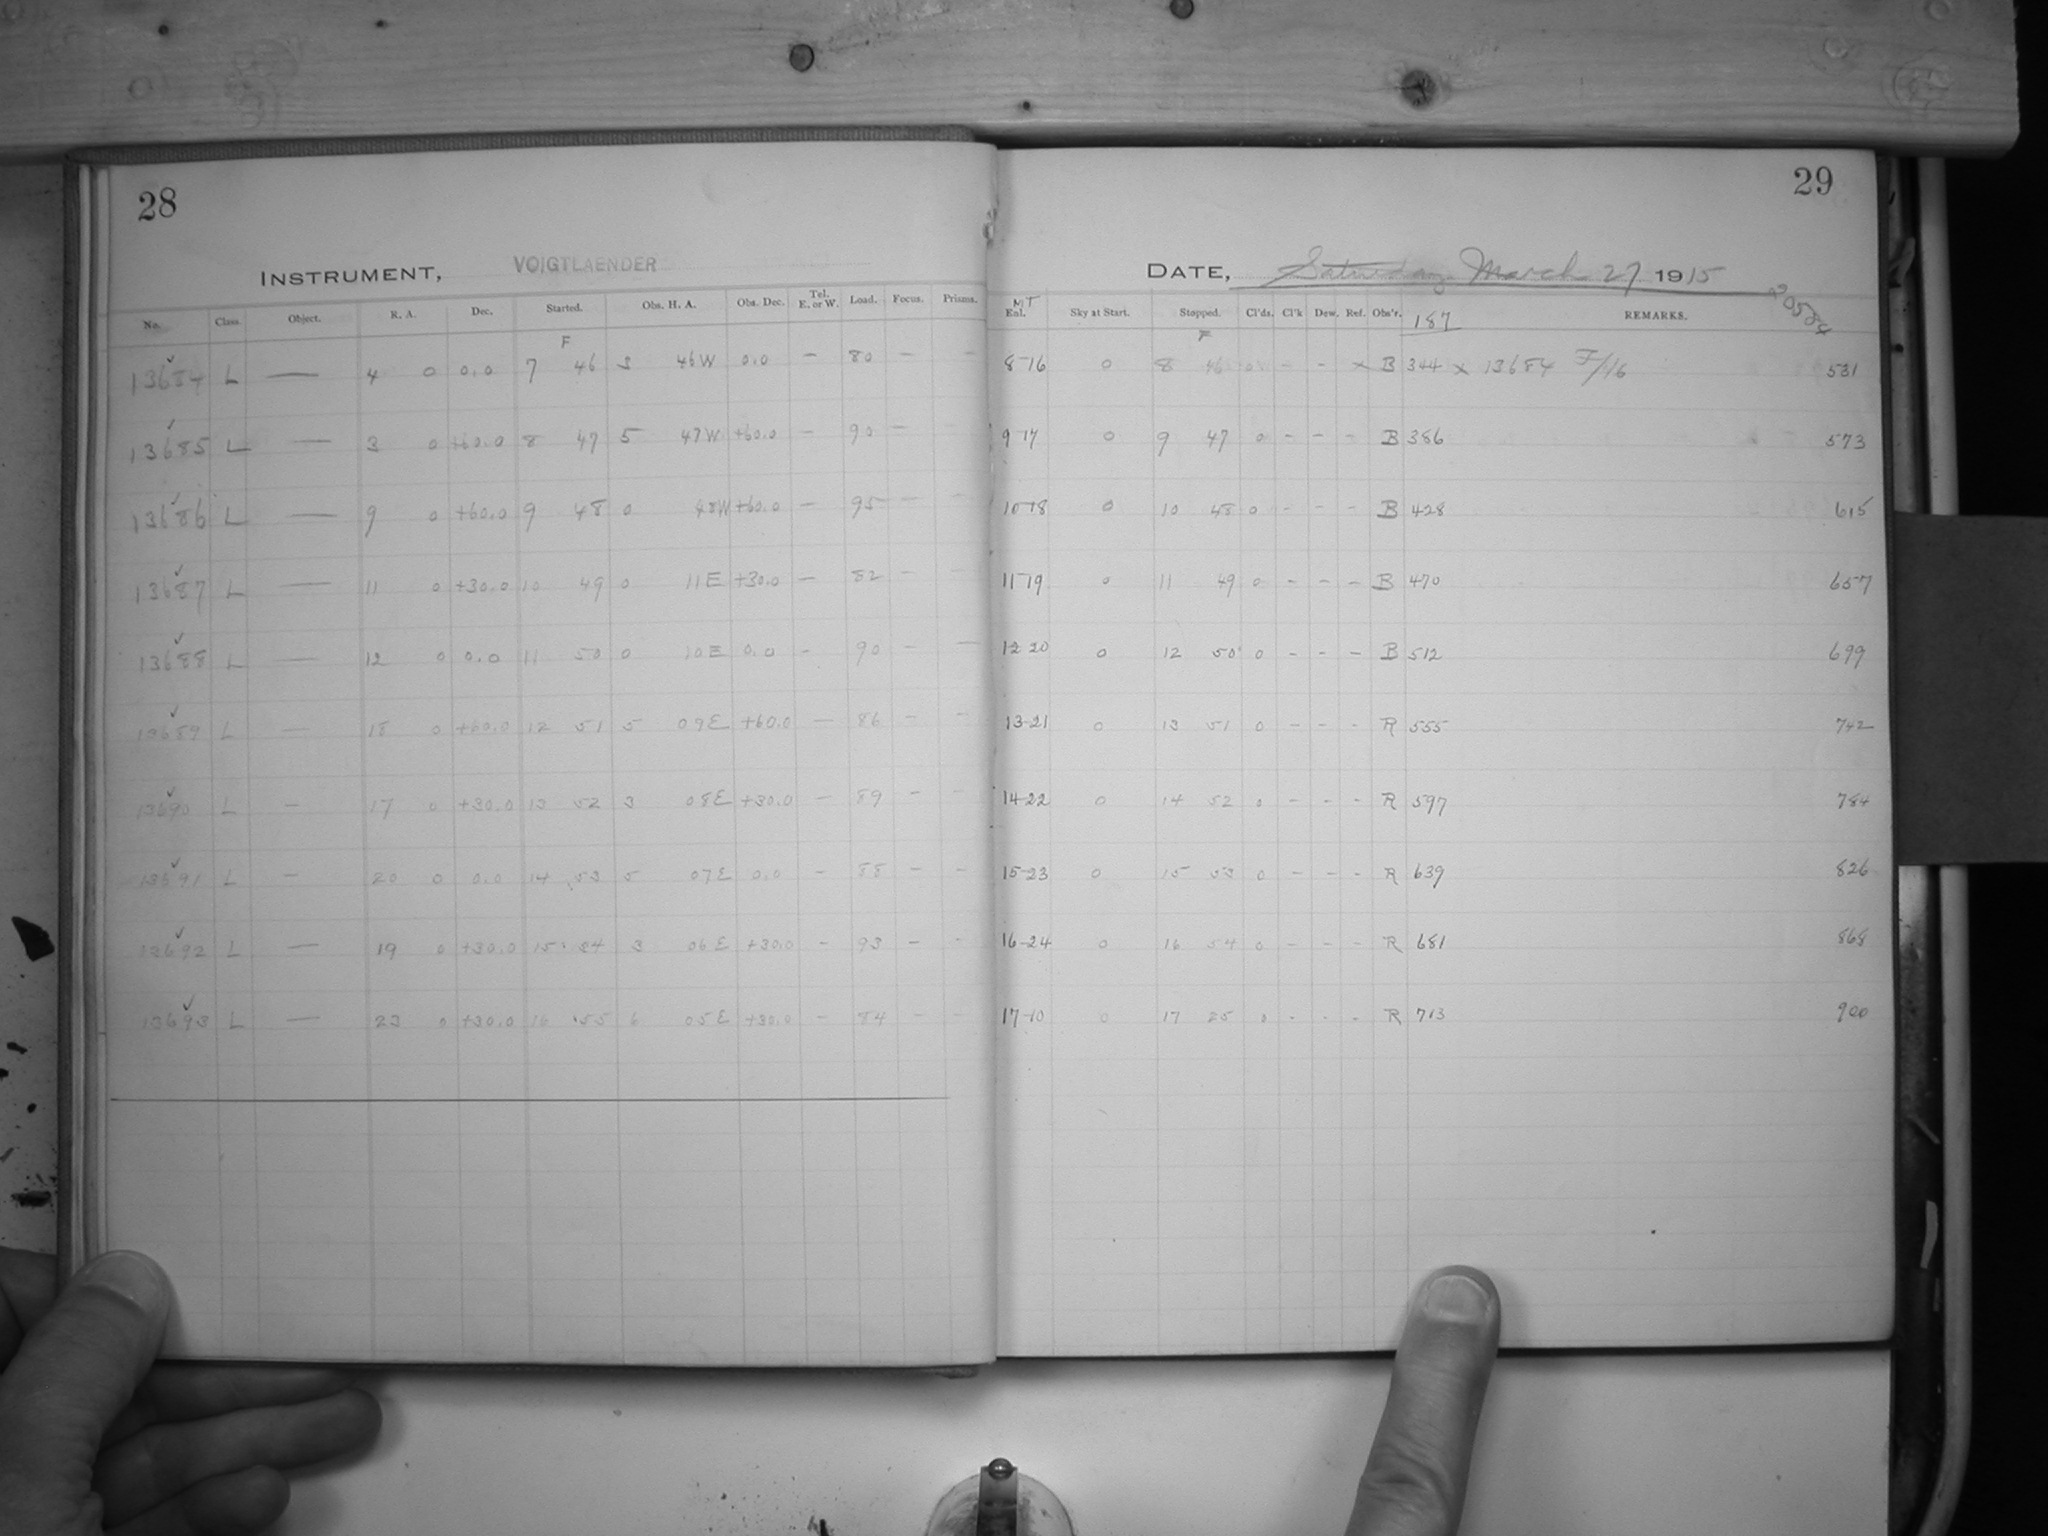 28
INSTRUMENT, VOIGTLAENDER
No. Class. Object. R. A. Dec. Started. Obs. H. A. Obs. Dec. Tel. E. or W. Load. Focus. Prisms.
F
13684 L — 4 0 0.0 7 46 3 46W 0.0 — 80 — —
13685 L — 3 0 +60.0 8 47 5 47W +60.0 — 90 —
13686 L — 9 0 +60.0 9 48 0 48W +60.0 — 95 — —
13687 L — 11 0 +30.0 10 49 0 11E +30.0 — 82 — —
13688 L — 12 0 0.0 11 50 0 10E 0.0 - 90 — —
13689 L — 18 0 +60.0 12 51 5 09E +60.0 — 86 - -
13690 L — 17 0 +30.0 13 52 3 08E +30.0 — 89 - -
13691 L — 20 0 0.0 14 53 5 07E 0.0 - 88 - -
13692 L — 19 0 +30.0 15 54 3 06E +30.0 - 93 - -
13693 L — 23 0 +30.0 16 55 6 05E +30.0 - 84 - -
29
DATE, Saturday March 27 1915
MT
Enl. Sky at Start. Stopped. Cl'ds. Cl'k Dew. Ref. Obs'r. 187 REMARKS. 20584
F
8-16 0 8 46 0 - - x B 344 x 13684 F/16 531
9-17 0 9 47 0 - - - B 386 573
10-18 0 10 48 0 - - - B 428 615
11-19 0 11 49 0 - - - B 470 657
12-20 0 12 50 0 - - - B 512 699
13-21 0 13 51 0 - - - R 555 742
14-22 0 14 52 0 - - - R 597 784
15-23 0 15 53 0 - - - R 639 826
16-24 0 16 54 0 - - - R 681 868
17-10 0 17 25 0 - - - R 713 900